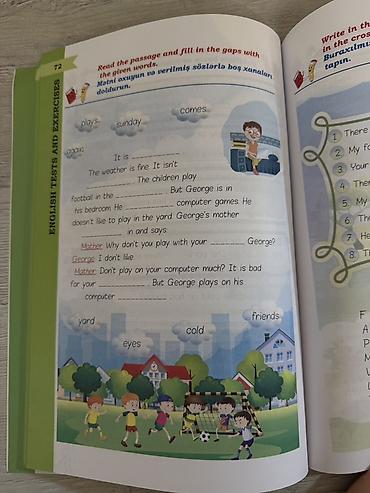 72
ENGLISH TESTS AND EXERCISES
Read the passage and fill in the gaps with
the given words.
Mətni oxuyun və verilmiş sözlərlə boş xanaları
doldurun.
plays
sunday
comes
again
It is ____________
The weather is fine. It isn't
____________. The children play
football in the ____________. But George is in
his bedroom. He ____________ computer games. He
doesn't like to play in the yard. George's mother
____________ in and says:
Mother: Why don't you play with your ________ George?
George: I don't like.
Mother: Don't play on your computer much? It is bad
for your ____________. But George plays on his
computer ____________
yard
eyes
cold
friends
Write in th
in the cros
Buraxılmı
tapın.
1 There
2 My fa
3 Your
4 Ther
5 My
6 The
7 He
8 Th
F
A